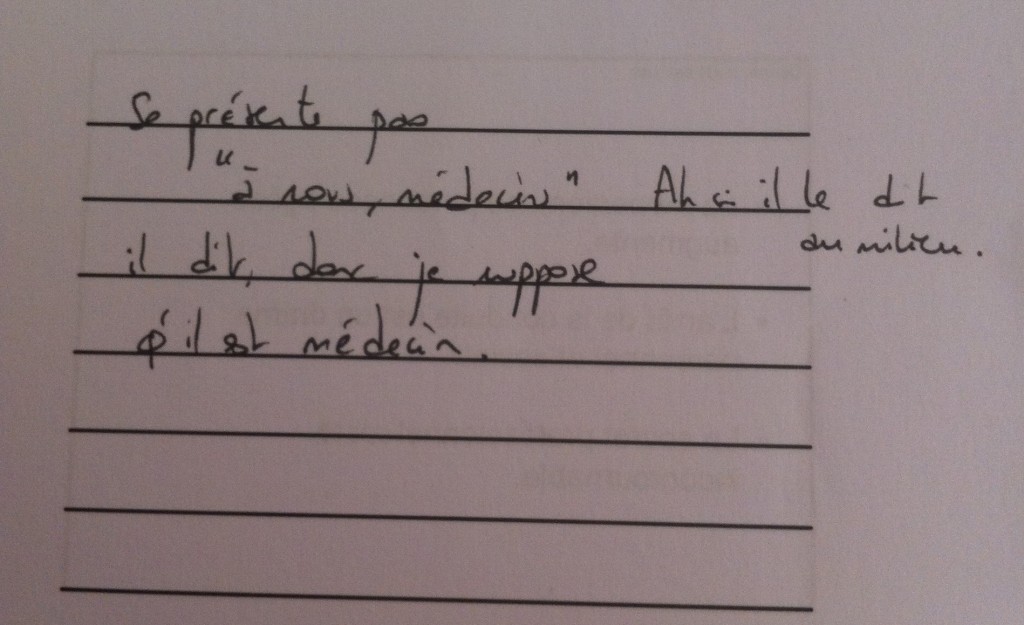 Se présente pas
"à nous, médecins" Ah si il le dit
au milieu.
il dit, donc je suppose
qu'il est médecin.